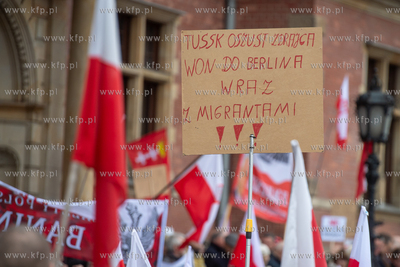 www.kfp.pl
TUSSK OSZUST ZDRAJCA
WON DO BERLINA
WRAZ
Z MIGRANTAMI